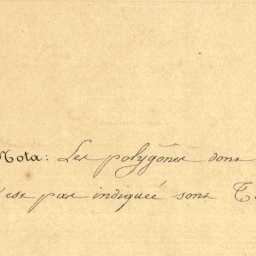 Nota: Les polygônes dons
'est pas indiquée sons T